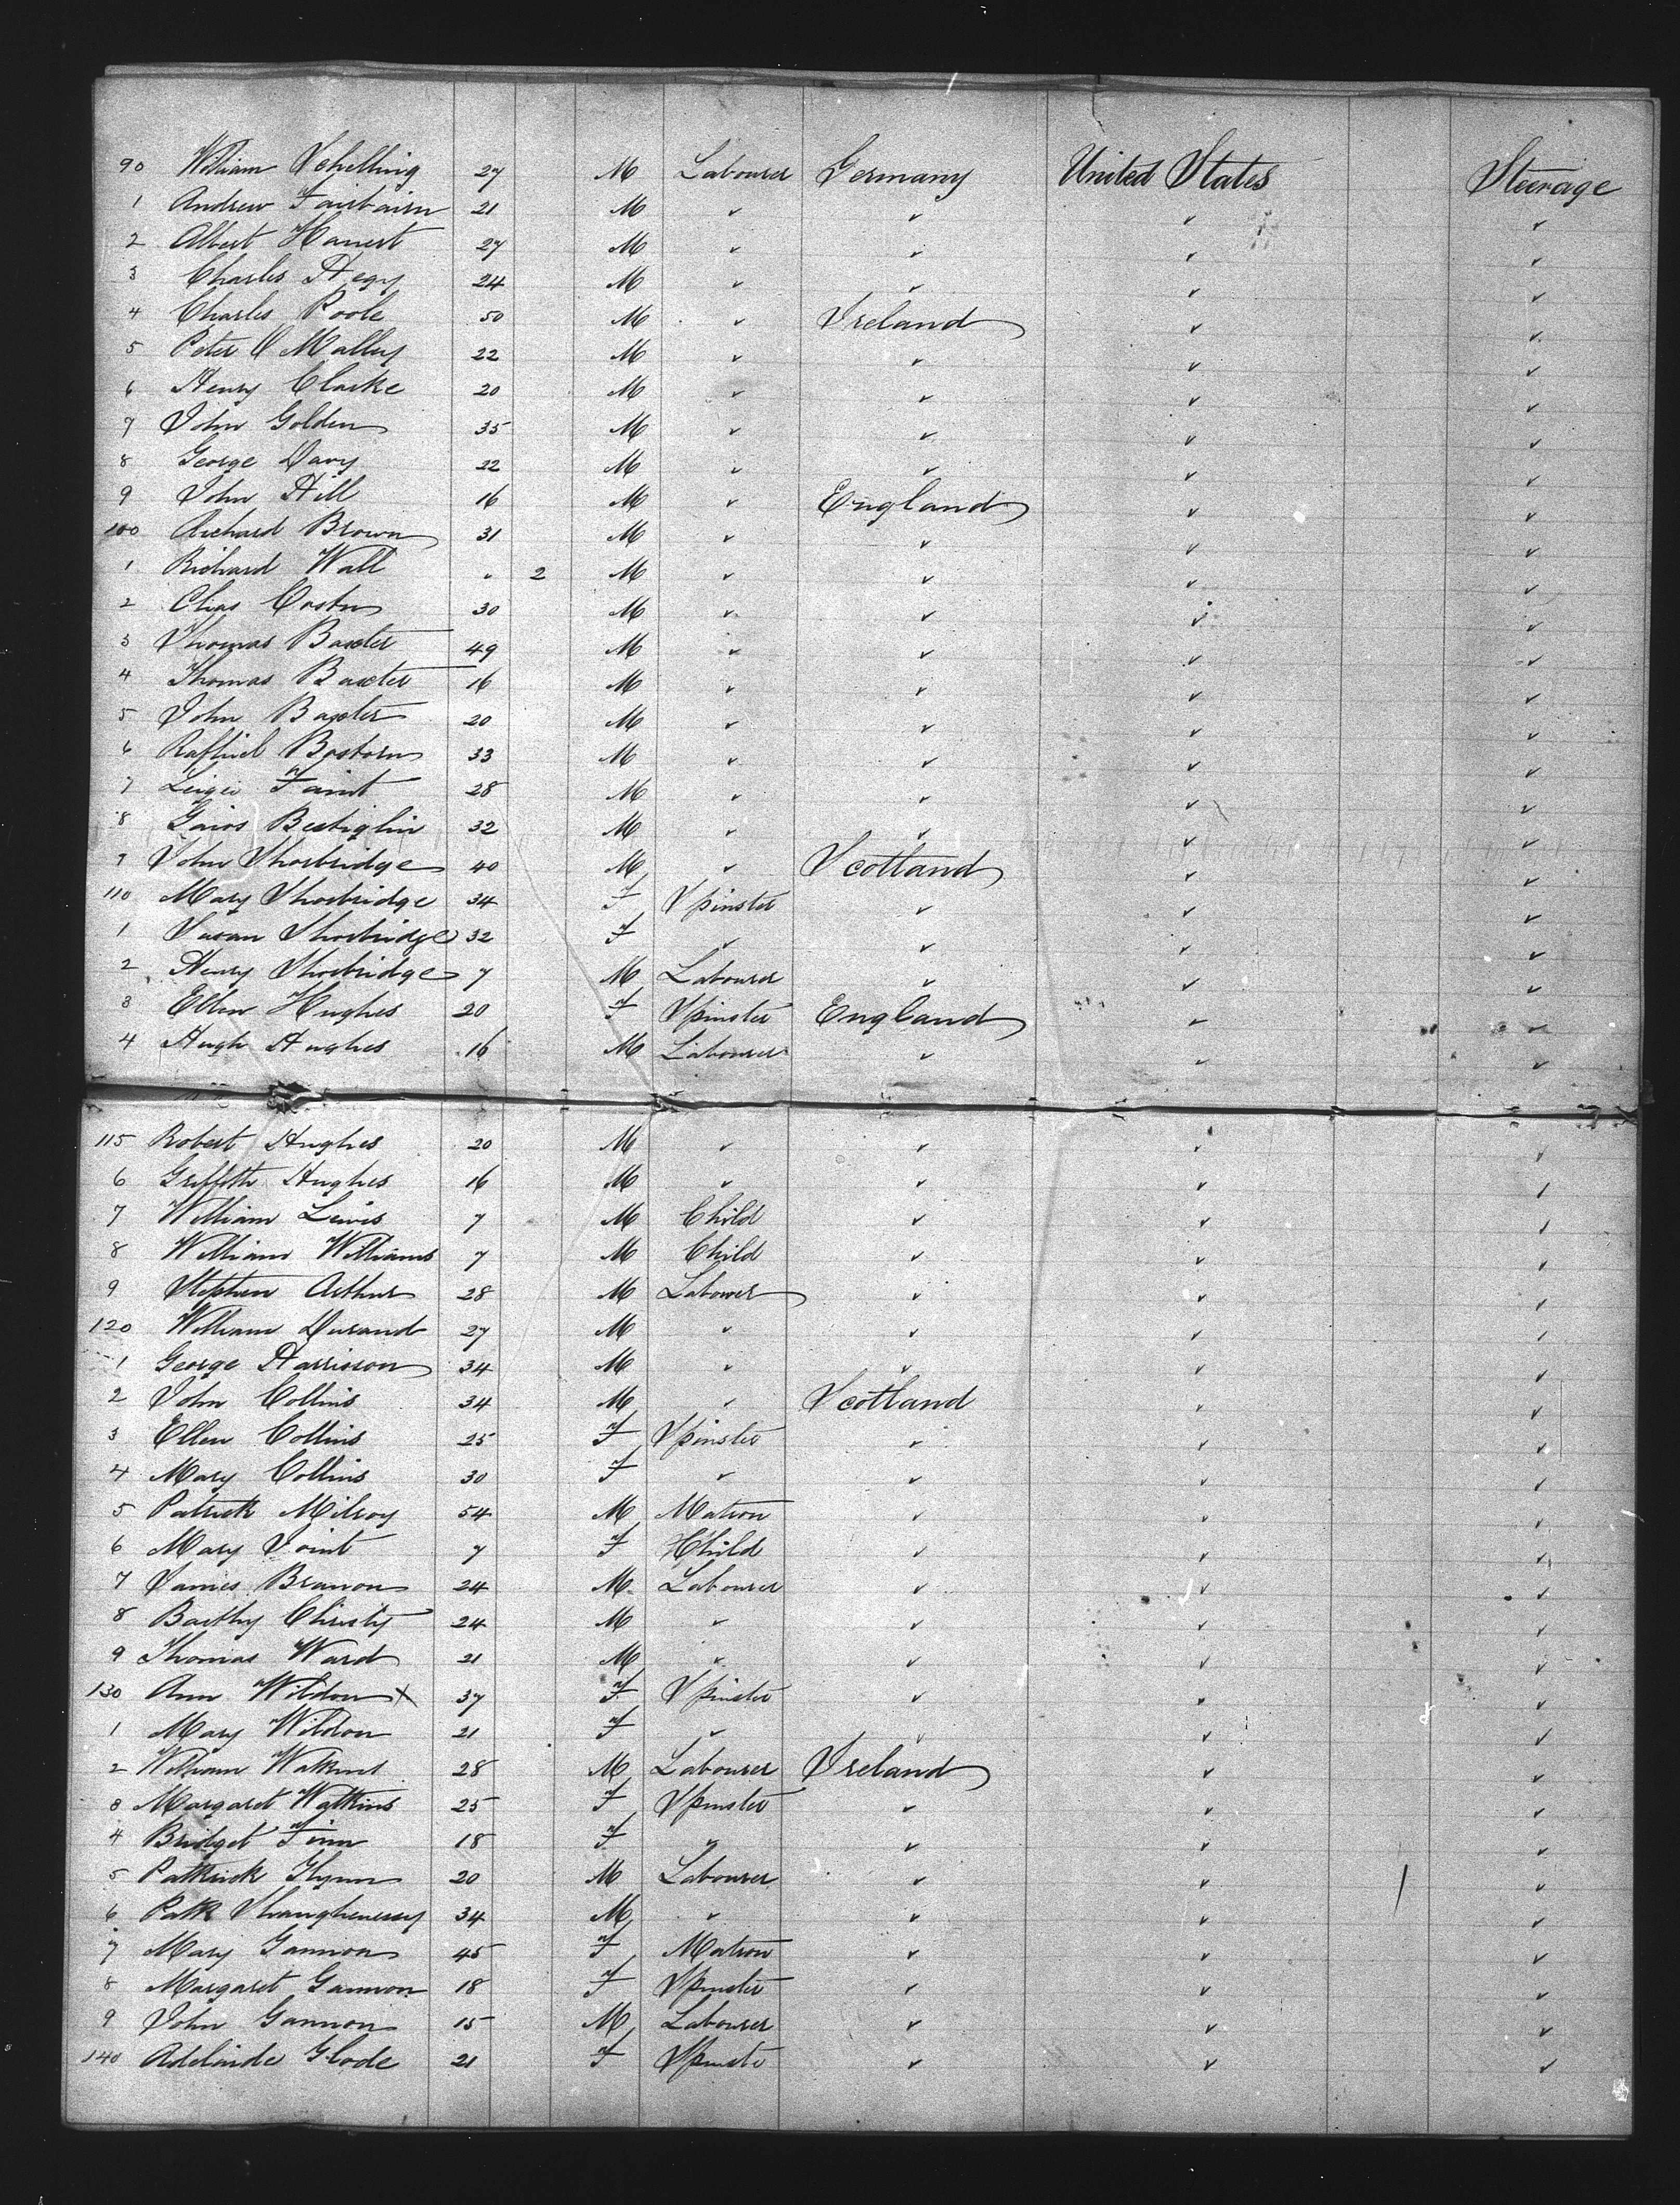 90 William Schelling 27 M Labourer Germany United States Steerage
1 Andrew Fairbairn 21 M " " " "
2 Albert 27 M " " " "
3 Charles Hegy 24 M " " " "
4 Charles Poole 50 M " Ireland " "
5 Peter O Malley 22 M " " " "
6 Henry Clarke 20 M " " " "
7 John Golden 35 M " " " "
8 George Davy 22 M " " " "
9 John Hill 16 M " England " "
100 Richard Brown 31 M " " " "
1 Richard Wall " 2 M " " " "
2 30 M " " " "
3 Thomas Baxter 49 M " " " "
4 Thomas Baxter 16 M " " " "
5 John Baxter 20 M " " " "
6 33 M " " " "
7 28 M " " " "
8 32 M " " " "
9 John Thorbridge 40 M " Scotland " "
110 Mary Thorbridge 34 F Spinster " " "
1 Susan Thorbridge 32 F " " " "
2 Henry Thorbridge 7 M Labourer " " "
3 Ellen Hughes 20 F Spinster England " "
4 Hugh Hughes 16 M Labourer " " "
115 Robert Hughes 20 M " " " "
6 Griffith Hughes 16 M " " " "
7 William Lewis 7 M Child " " "
8 William Williams 7 M Child " " "
9 Stephen Arthur 28 M Labourer " " "
120 William Durand 27 M " " " "
1 George Harrison 34 M " " " "
2 John Collins 34 M " Scotland " "
3 Ellen Collins 25 F Spinster " " "
4 Mary Collins 30 F " " " "
5 Patrick Milroy 54 M Matron " " "
6 Mary Joint 7 F Child " " "
7 James Branon 24 M Labourer " " "
8 Barthy Christy 24 M " " " "
9 Thomas Ward 21 M " " " "
130 Ann Wildon X 37 F Spinster " " "
1 Mary Wildon 21 F " " " "
2 William Watkins 28 M Labourer Ireland " "
3 Margaret Watkins 25 F Spinster " " "
4 Bridget Finn 18 F " " " "
5 Patkrick 20 M Labourer " " "
6 Patk Shaughenessy 34 M " " " "
7 Mary Gannon 45 F Matron " " "
8 Margaret Gannon 18 F Spinster " " "
9 John Gannon 15 M Labourer " " "
140 Adelaide Glode 21 F Spinster " " "